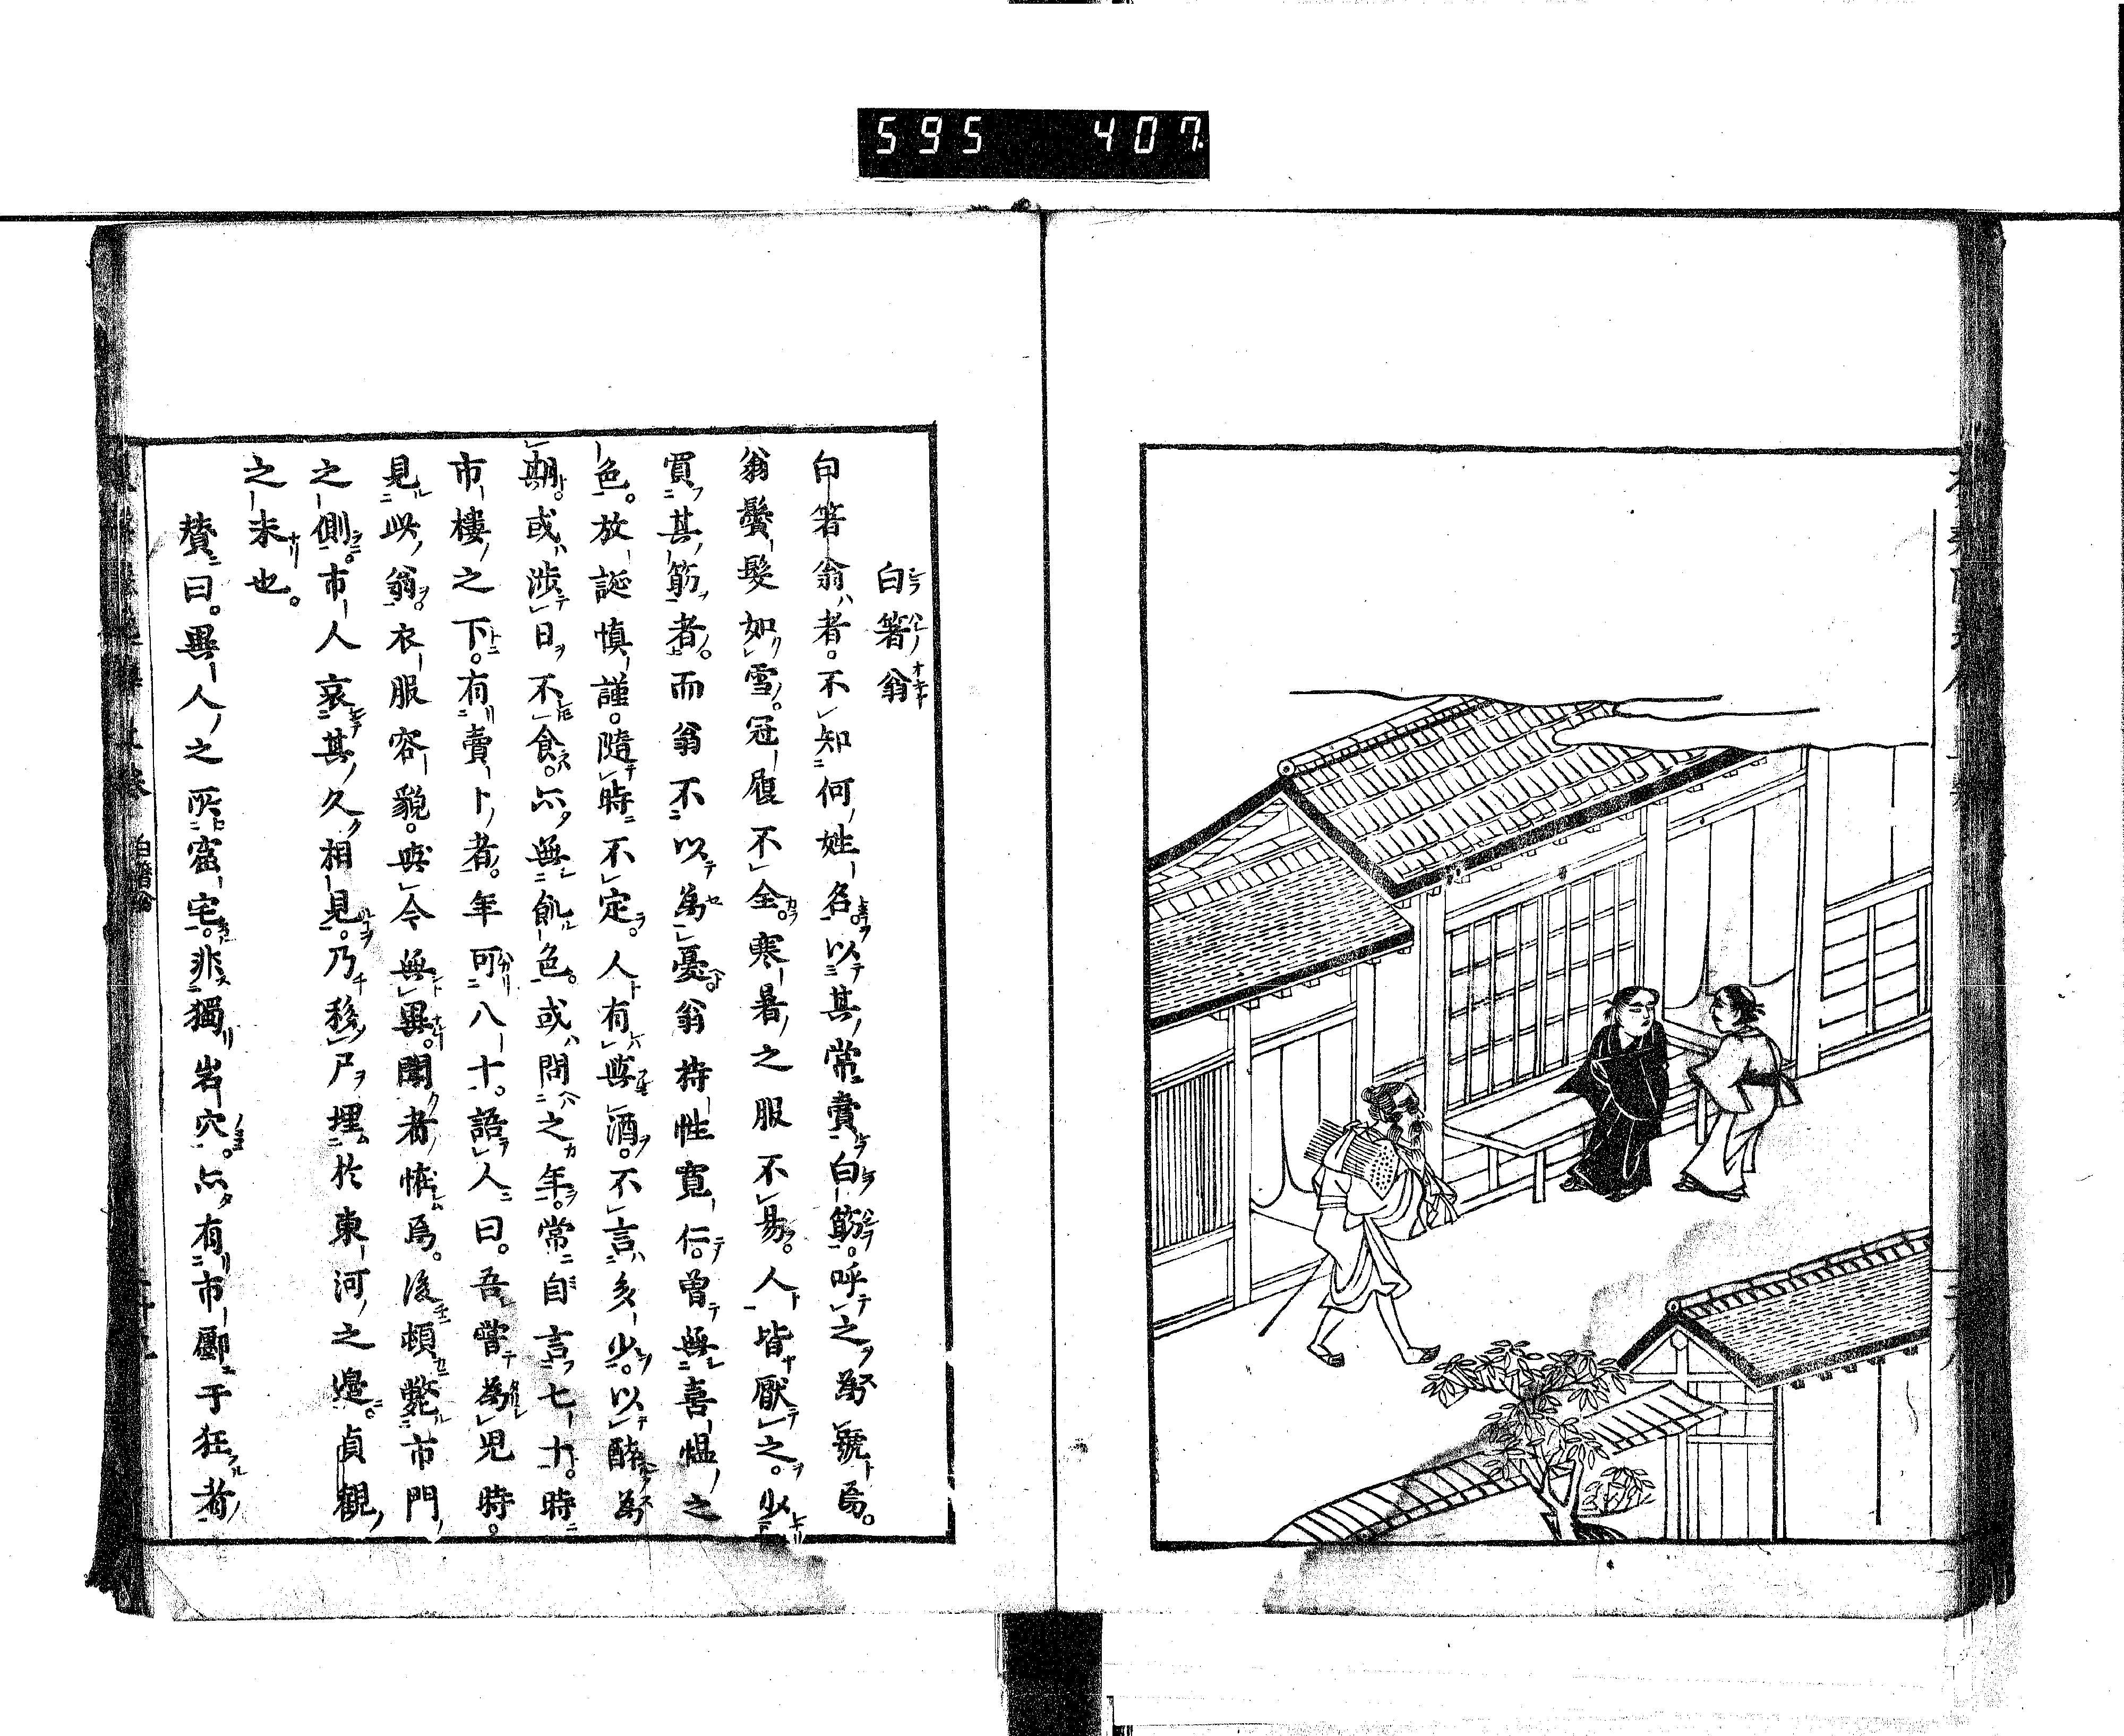 595 407
白箸翁
白箸翁者。不知何姓名。以其常賣白筯。呼之為號焉。
翁鬢髮如雪。冠履不全。寒暑之服不易。人皆厭之。少
買其筯者。而翁不以為憂。翁持性寬仁。曾無喜慍之
色。放誕慎謹。隨時不定。人有與酒。不言多少。以醉為
期。或涉日不食。亦無飢色。或問之年。常自言七十。時
市樓之下。有賣卜者。年可八十。語人曰。吾嘗為兒時。
見此翁。衣服容貌。與今無異。聞者恠焉。後頓斃市門
之側。市人哀其久相見。乃移尸埋於東河之邊。貞觀
之末也。
贊曰。異人之所窟宅。非獨岩穴。亦有市鄽。于狂者
白箸翁